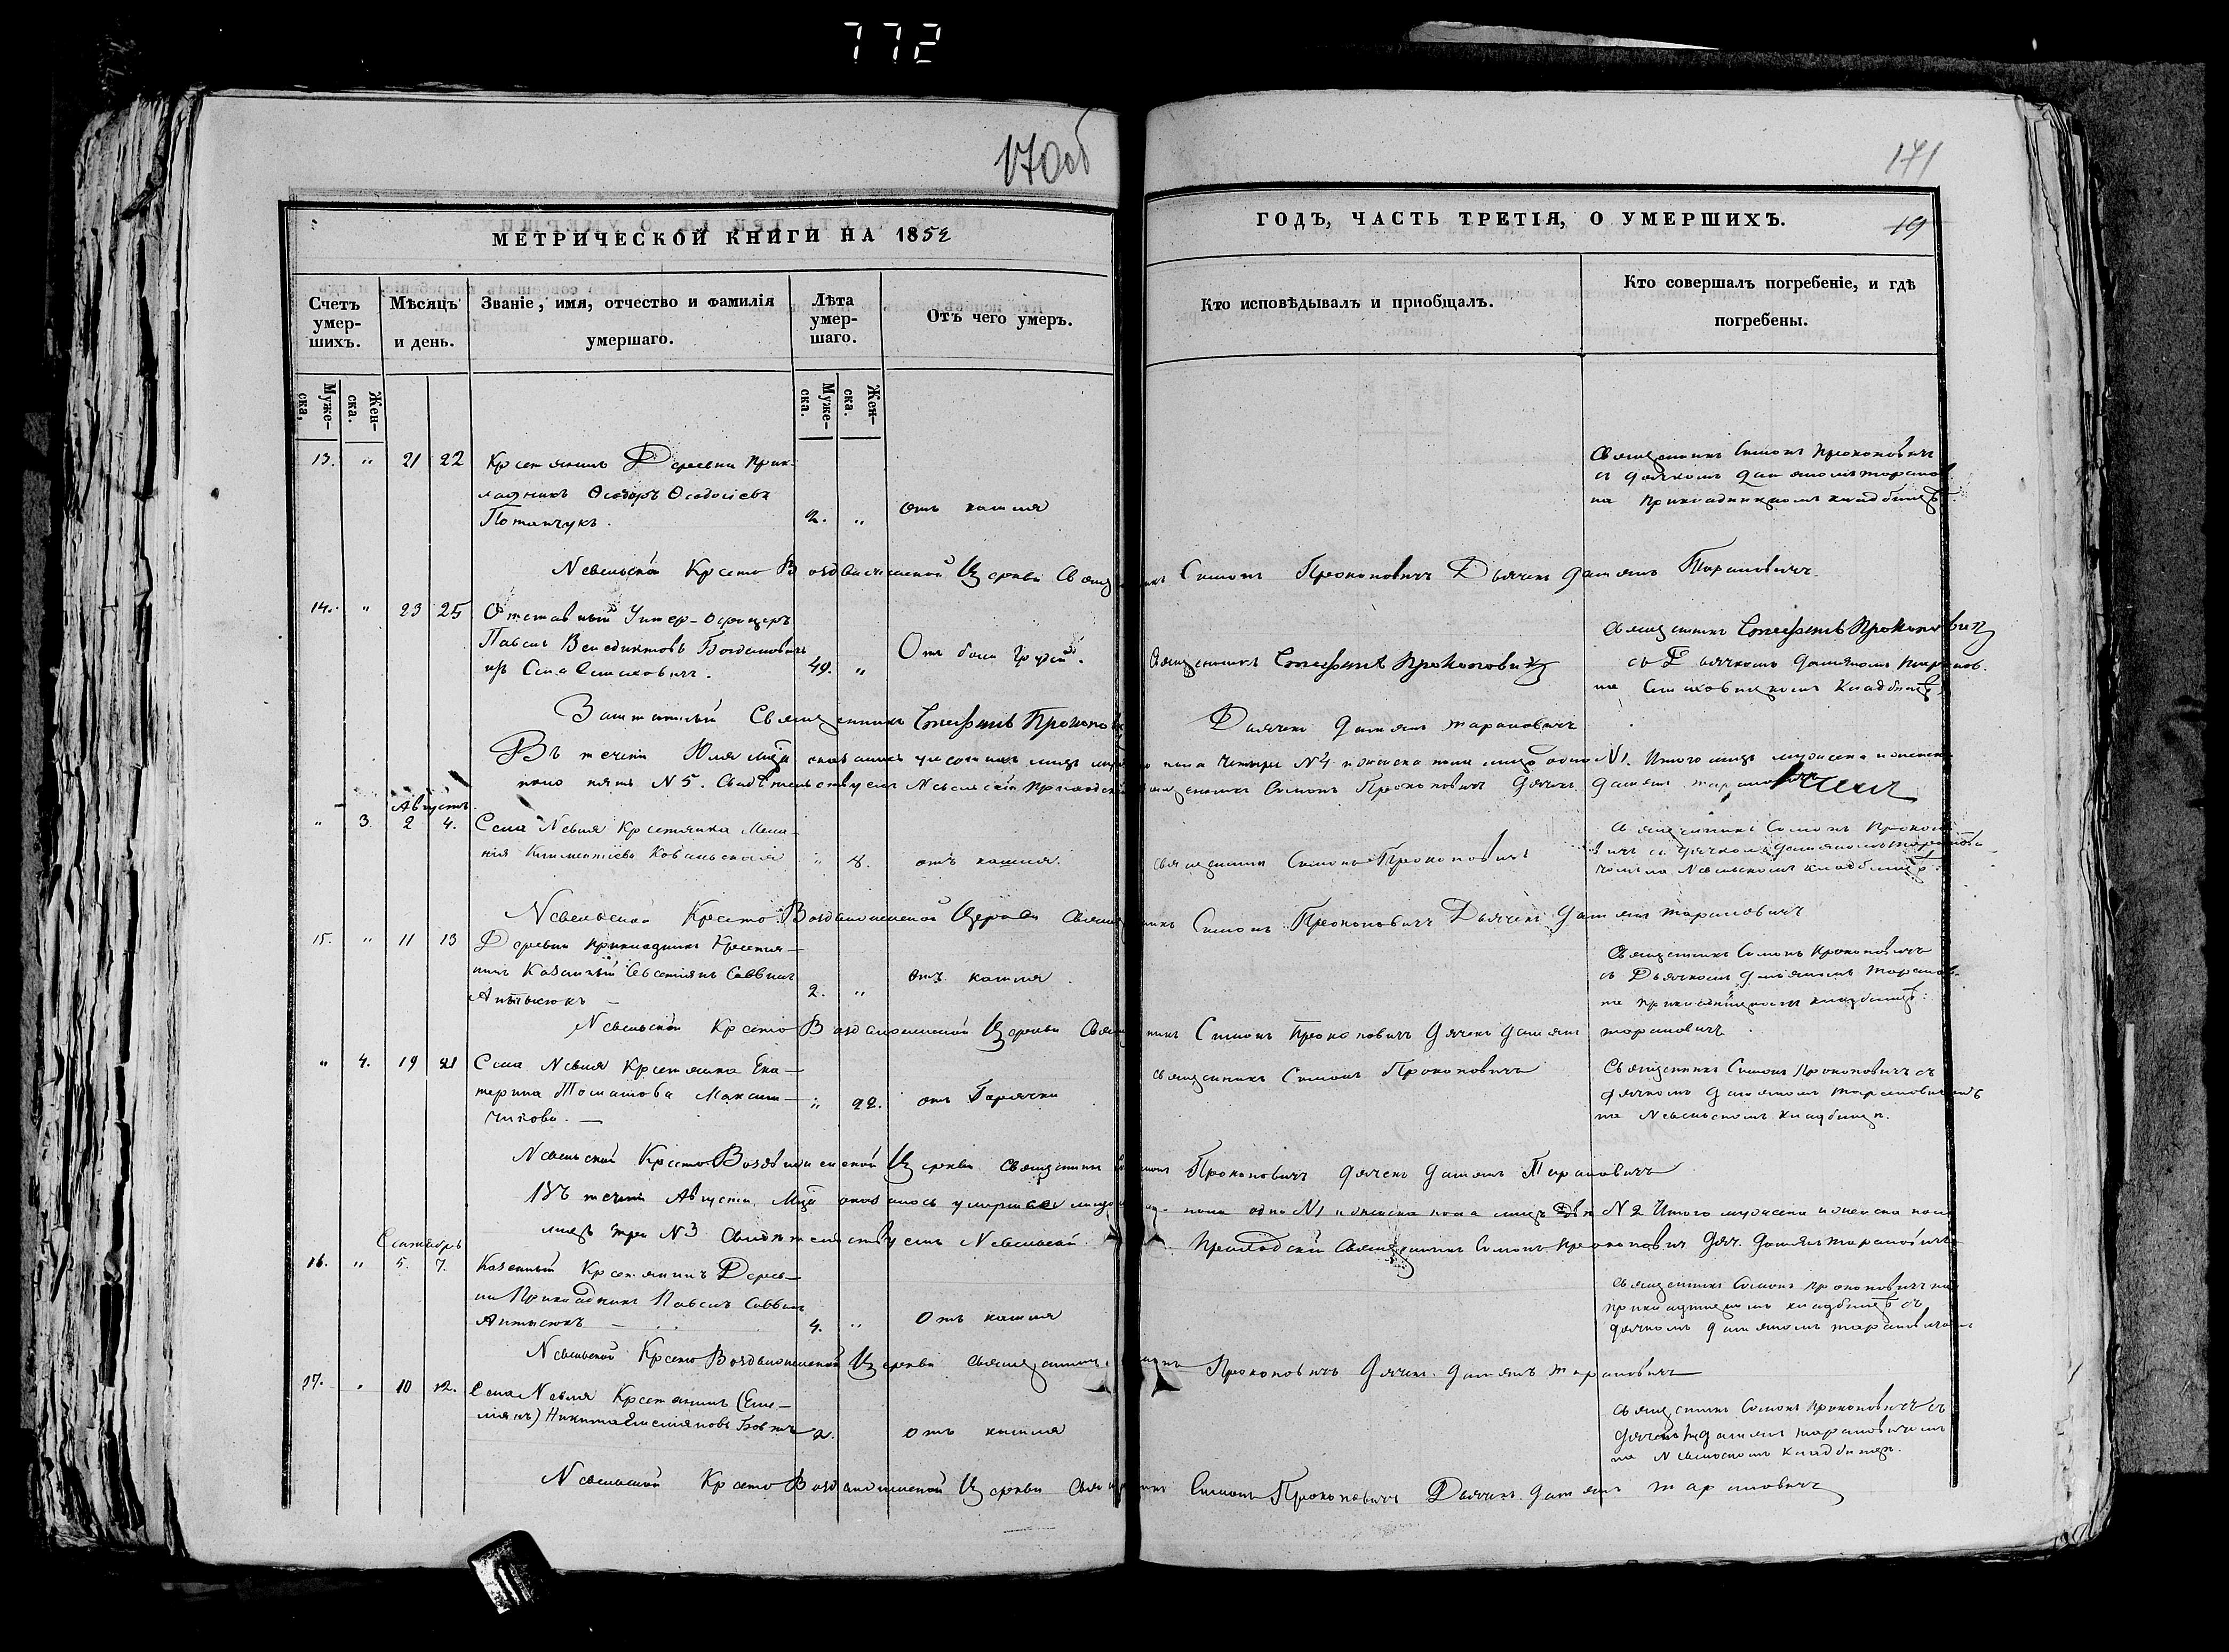 772
170об
171
МЕТРИЧЕСКОЙ КНИГИ НА 1852
ГОДЪ, ЧАСТЬ ТРЕТІЯ, О УМЕРШИХЪ.
19
Счетъ умер-
шихъ.
Мѣсяцъ
и день.
Званіе, имя, отчество и фамилія
умершаго.
Лѣта
умер-
шаго.
Отъ чего умеръ.
Кто исповѣдывалъ и пріобщалъ.
Кто совершалъ погребеніе, и гдѣ
погребены.
Муже-
ска,
Жен-
ска.
Муже-
ска.
Жен-
ска.
13. " 21 22
Крестянинъ Деревни Прик-
ладникъ Ѳеодоръ Ѳеодосіевъ
Потапчукъ.
2. "
Отъ кашля
Священникъ Симонъ Прокоповичъ
съ дячкомъ
на Прикладницкомъ кладбищѣ
Невельской Кресто Воздвиженской Церкви Священникъ Симонъ Прокоповичъ Дьячекъ Даміанъ Тарановичъ
14. " 23 25
Отставный Унтер-Офицеръ
Павелъ Венедиктовъ Богдановичъ
49. "
Отъ боли грудей.
Священникъ Стефанъ Прокоповичъ
Священникъ Стефанъ Прокоповичъ
съ Дьячкомъ Даміаномъ
на кладбищѣ
Заштатный Священникъ Стефанъ Прокоповичъ
Дьячекъ Даміанъ Тарановичъ
Въ теченіи Юля
пола четыре N 4 женска пола лицо одно N 1. Итого лицъ мужеска и женска
пола пять N 5. Свидѣтельствуемъ Невельскій Приходскій Священникъ Симонъ Прокоповичъ Дячекъ Даміанъ Тарановичъ
Августъ
" 3. 2 4.
Села Невля Крестянка Мела-
нія Климентіева Ковальская
" 8.
отъ кашля.
Священникъ Симонъ Прокоповичъ
Священникъ Симонъ Прокопо-
вичъ съ дячкомъ Даміаномъ Таранови-
чомъ на Невельскомъ кладбищѣ.
Невельской Кресто Воздвиженской Церкви Священникъ Симонъ Прокоповичъ Дьячекъ Даміанъ Тарановичъ
15. " 11 13
Деревни Прикладникъ Крестья-
нинъ Казенный Севстіянъ Саввинъ
Антысюкъ —
2. "
отъ кашля.
Священникъ Симонъ Прокоповичъ
съ Дьячкомъ Даміаномъ
на Прикладницкомъ кладбищѣ.
Невельской Кресто Воздвиженской Церкви Священникъ Симонъ Прокоповичъ Дячекъ Даміанъ Тарановичъ.
" 4. 19 21
Села Невля Крестянка Ека-
терина Томашова Максим-
чикова. —
" 22.
отъ Горячки
Священникъ Симонъ Прокоповичъ
Священникъ Симонъ Прокоповичъ съ
дячкомъ Даміаномъ Тарановичемъ
на Невельскомъ кладбищѣ.
Невельской Кресто Воздвиженской Церкви Священникъ Симонъ Прокоповичъ Дячекъ Даміанъ Тарановичъ
Въ теченіи Августа оказалось умершее лицо
пола одно N 1 и женска пола лицъ двѣ N 2 Итого мужеска и женска пола
лицъ три N 3 Свидѣтельствуемъ Невельской Приходскій Священникъ Симонъ Прокоповичъ Дяч. Даміанъ Тарановичъ
Сентябрь
16. " 5. 7.
Казенный Крестянинъ Дерев-
ни Прикладникъ Павелъ Саввинъ
Антысюкъ —
4. "
Отъ кашля
Священникъ Симонъ Прокоповичъ на
Прикладницкомъ кладбищѣ съ
дячкомъ Даміаномъ Тарановичемъ
Невельской Кресто Воздвиженской Церкви Священникъ Симонъ Прокоповичъ Дячекъ Даміанъ Тарановичъ
17. " 10 12.
Села Невля Крестянинъ (Еме-
ліянъ) Никита Емеліяновъ
2.
отъ кашля
Священникъ Симонъ Прокоповичъ съ
Даміаномъ Тарановичемъ
на Невельскомъ кладбищѣ.
Невельской Кресто Воздвиженской Церкви Священникъ Симонъ Прокоповичъ Дьячекъ Даміанъ Тарановичъ